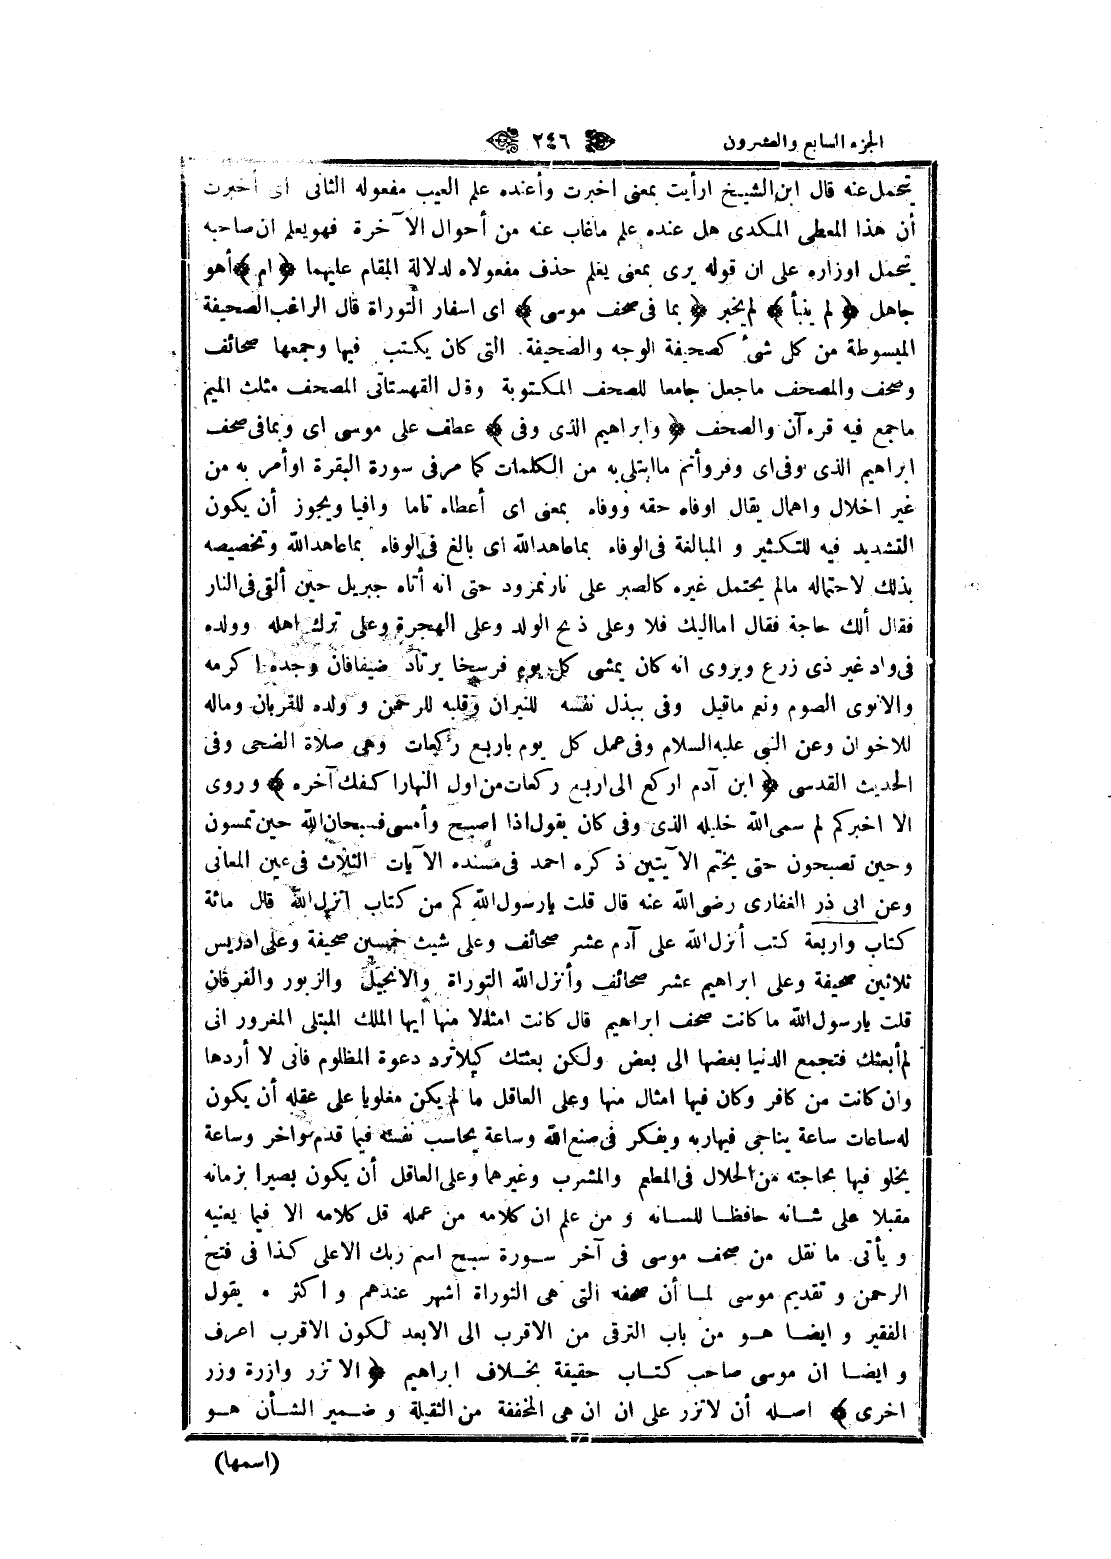 الجزء السابع والعشرون
٢٤٦
يتحمل عنه قال ابن الشيخ ارأيت بمعنى اخبرت وأعنده علم الغيب مفعوله الثانى اى أخبرت
أن هذا المعطى المكدى هل عنده علم ماغاب عنه من أحوال الآخرة فهو يعلم ان صاحبه
يتحمل اوزاره على ان قوله يرى بمعنى يعلم حذف مفعولاه لدلالة المقام عليهما ﴿ ام ﴾ أهو
جاهل ﴿ لم ينبأ ﴾ لم يخبر ﴿ بما فى صحف موسى ﴾ اى اسفار التوراة قال الراغب الصحيفة
المبسوطة من كل شئ كصحيفة الوجه والصحيفة التى كان يكتب فيها وجمعها صحائف
وصحف والمصحف ماجعل جامعا للصحف المكتوبة وقال القهستانى المصحف مثلث الميم
ماجمع فيه قرءآن والصحف ﴿ وابراهيم الذى وفى ﴾ عطف على موسى اى وبما فى صحف
ابراهيم الذى وفى اى وفر وأتم ماابتلى به من الكلمات كما مر فى سورة البقرة اوأمر به من
غير اخلال واهمال يقال اوفاه حقه ووفاه بمعنى اى أعطاه تاما وافيا ويجوز أن يكون
التشديد فيه للتكثير و المبالغة فى الوفاء بما عاهد الله اى بالغ فى الوفاء بما عاهد الله وتخصيصه
بذلك لاحتماله مالم يحتمل غيره كالصبر على نار نمرود حتى انه أتاه جبريل حين ألقى فى النار
فقال ألك حاجة فقال اما اليك فلا وعلى ذبح الولد وعلى الهجرة وعلى ترك اهله وولده
فى واد غير ذى زرع ويروى انه كان يمشى كل يوم فرسخا يرتاد ضيفا فان وجده اكرمه
والا نوى الصوم ونعم ماقيل وفى ببذل نفسه للنيران وقلبه للرحمن و ولده للقربان وماله
للاخوان وعن النبى عليه السلام وفى عمل كل يوم باربع ركعات وهى صلاة الضحى وفى
الحديث القدسى ﴿ ابن آدم اركع الى اربع ركعات من اول النهار اكفك آخره ﴾ و روى
الا اخبركم لم سمى الله خليله الذى وفى كان يقول اذا اصبح وأمسى فسبحان الله حين تمسون
وحين تصبحون حتى يختم الآيتين ذكره احمد فى مسنده الآيات الثلاث فى عين المعانى
وعن ابى ذر الغفارى رضى الله عنه قال قلت يارسول الله كم من كتاب انزل الله قال مائة
كتاب واربعة كتب أنزل الله على آدم عشر صحائف وعلى شيث خمسين صحيفة وعلى ادريس
ثلاثين صحيفة وعلى ابراهيم عشر صحائف وأنزل الله التوراة والانجيل والزبور والفرقان
قلت يارسول الله ما كانت صحف ابراهيم قال كانت امثالا منها أيها الملك المبتلى المغرور انى
لم أبعثك فتجمع الدنيا بعضها الى بعض ولكن بعثتك كيلا ترد دعوة المظلوم فانى لا أردها
وان كانت من كافر وكان فيها امثال منها وعلى العاقل ما لم يكن مغلوبا على عقله أن يكون
له ساعات ساعة يناجى فيها ربه ويفكر فى صنع الله وساعة يحاسب نفسه فيما قدم واخر وساعة
يخلو فيها بحاجته من الحلال فى المطعم والمشرب وغيرهما وعلى العاقل أن يكون بصيرا بزمانه
مقبلا على شانه حافظا للسانه و من علم ان كلامه من عمله قل كلامه الا فيما يعنيه
و يأتى ما نقل من صحف موسى فى آخر سورة سبح اسم ربك الاعلى كذا فى فتح
الرحمن و تقديم موسى لما أن صحفه التى هى التوراة اشهر عندهم و اكثر . يقول
الفقير و ايضا هو من باب الترقى من الاقرب الى الابعد لكون الاقرب اعرف
و ايضا ان موسى صاحب كتاب حقيقة بخلاف ابراهيم ﴿ الا تزر وازرة وزر
اخرى ﴾ اصله أن لا تزر على ان ان هى المخففة من الثقيلة و ضمير الشأن هو
(اسمها)